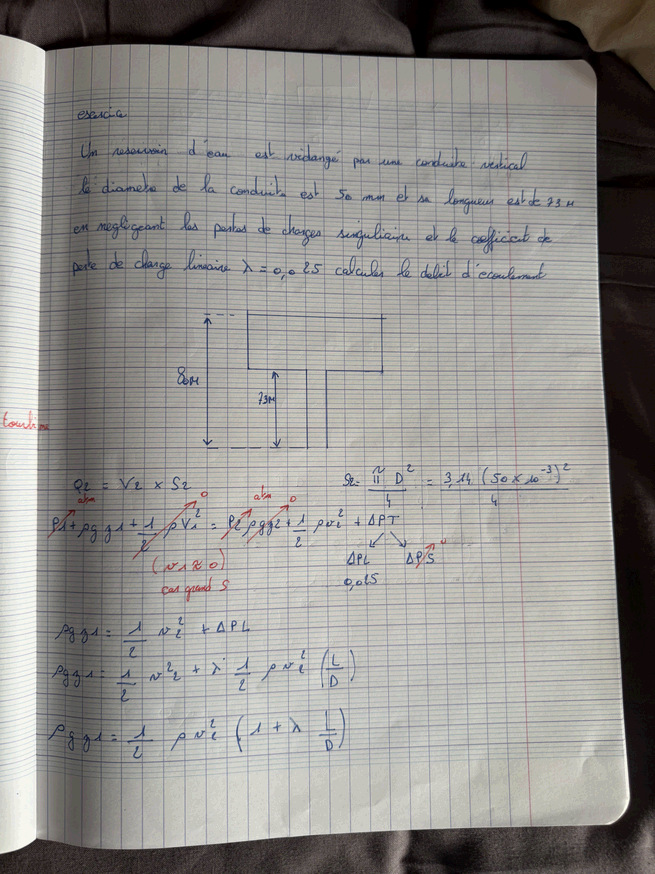 exercice
Un reservoir d'eau est vidangé par une conduite vertical
le diametre de la conduite est 50 mm et sa longueur est de 73 M
en negligeant les pertes de charges singuliaire et le coefficient de
perte de charge lineaire λ = 0,025 calculer le debit d'ecoulement
80M
73M
turbine
Q2 = V2 × S2
S2 = π D² / 4 = 3,14 (50 × 10⁻³)² / 4
atm 0 atm 0
P1 + ρg z1 + 1/2 ρ V1² = P2 ρg z2 + 1/2 ρ v2² + ΔPT
(v1 ≈ 0)
car grand S
ΔPL ΔPS 0
0,025
ρg z1 = 1/2 v2² + ΔPL
ρg z1 = 1/2 v²2 + λ 1/2 ρ v2² (L/D)
ρg z1 = 1/2 ρ v2² (1 + λ L/D)